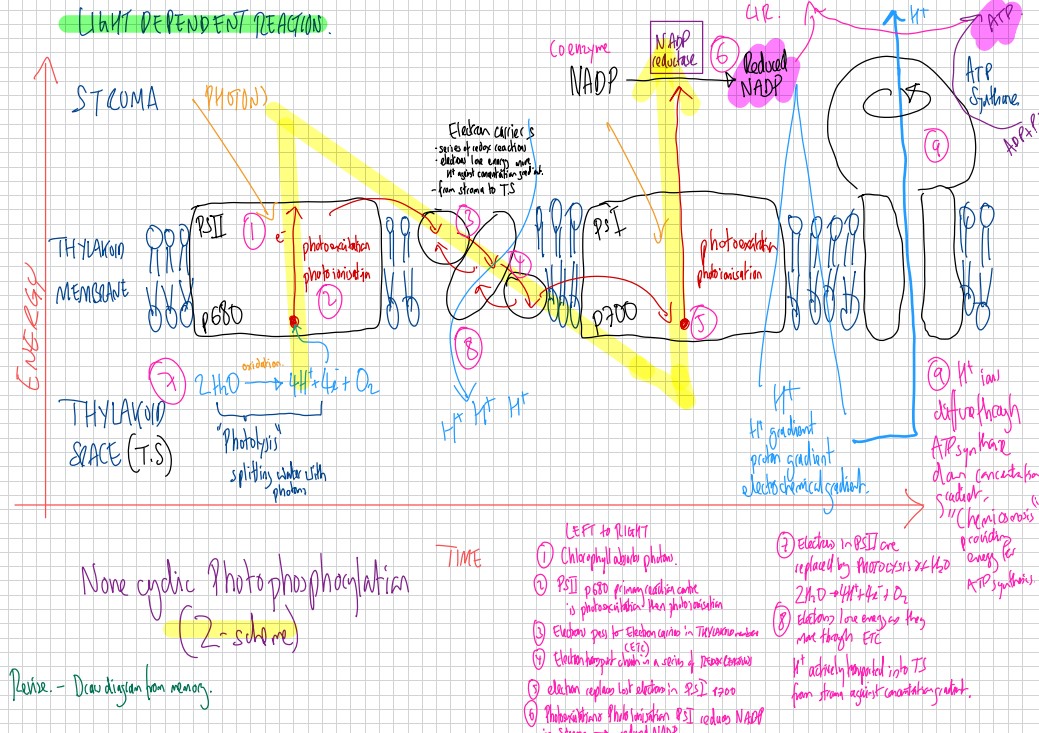 LIGHT DEPENDENT REACTION.
STROMA
PHOTONS
Coenzyme
NADP
NADP
reductase
6
Reduced
NADP
LIR.
H+
ATP
ATP
Synthase
ADP+P
9
Electron carriers
- series of redox reaction
- electrons lose energy move
H+ against concentration gradient.
- from stroma to TS
ENERGY
THYLAKOID
MEMBRANE
PSII
1
e-
photoexcitation
photoionisation
2
p680
3
4
8
PSI
photoexcitation
photoionisation
p700
5
7
2H2O
oxidation
4H+ + 4e- + O2
"Photolysis"
splitting water with
photons
THYLAKOID
SPACE (T.S)
H+ H+ H+
H+
H+ gradient
proton gradient
electrochemical gradient.
9 H+ ion
diffuse through
ATP synthase
down concentration
gradient.
"Chemiosmosis"
providing
energy for
ATP synthesis.
TIME
None cyclic Photophosphorylation
(Z-scheme)
Revise. - Draw diagram from memory.
LEFT TO RIGHT
1 Chlorophyll absorbs photons.
2 PSII p680 primary reaction centre
is photoexcitation then photoionisation
3 Electrons pass to Electron carries in THYLAKOID membrane
(ETC)
4 Electron transport chain in a series of REDOX REACTIONS
5 electron replaces lost electron in PSI P700
6 Photoexcitation & Photoionisation PSI reduces NADP
in stroma
reduced NADP
7 Electrons in PSII are
replaced by PHOTOLYSIS of H2O
2H2O → 4H+ + 4e- + O2
8 Electrons lose energy as they
move through ETC
H+ actively transported into TS
from stroma against concentration gradient.